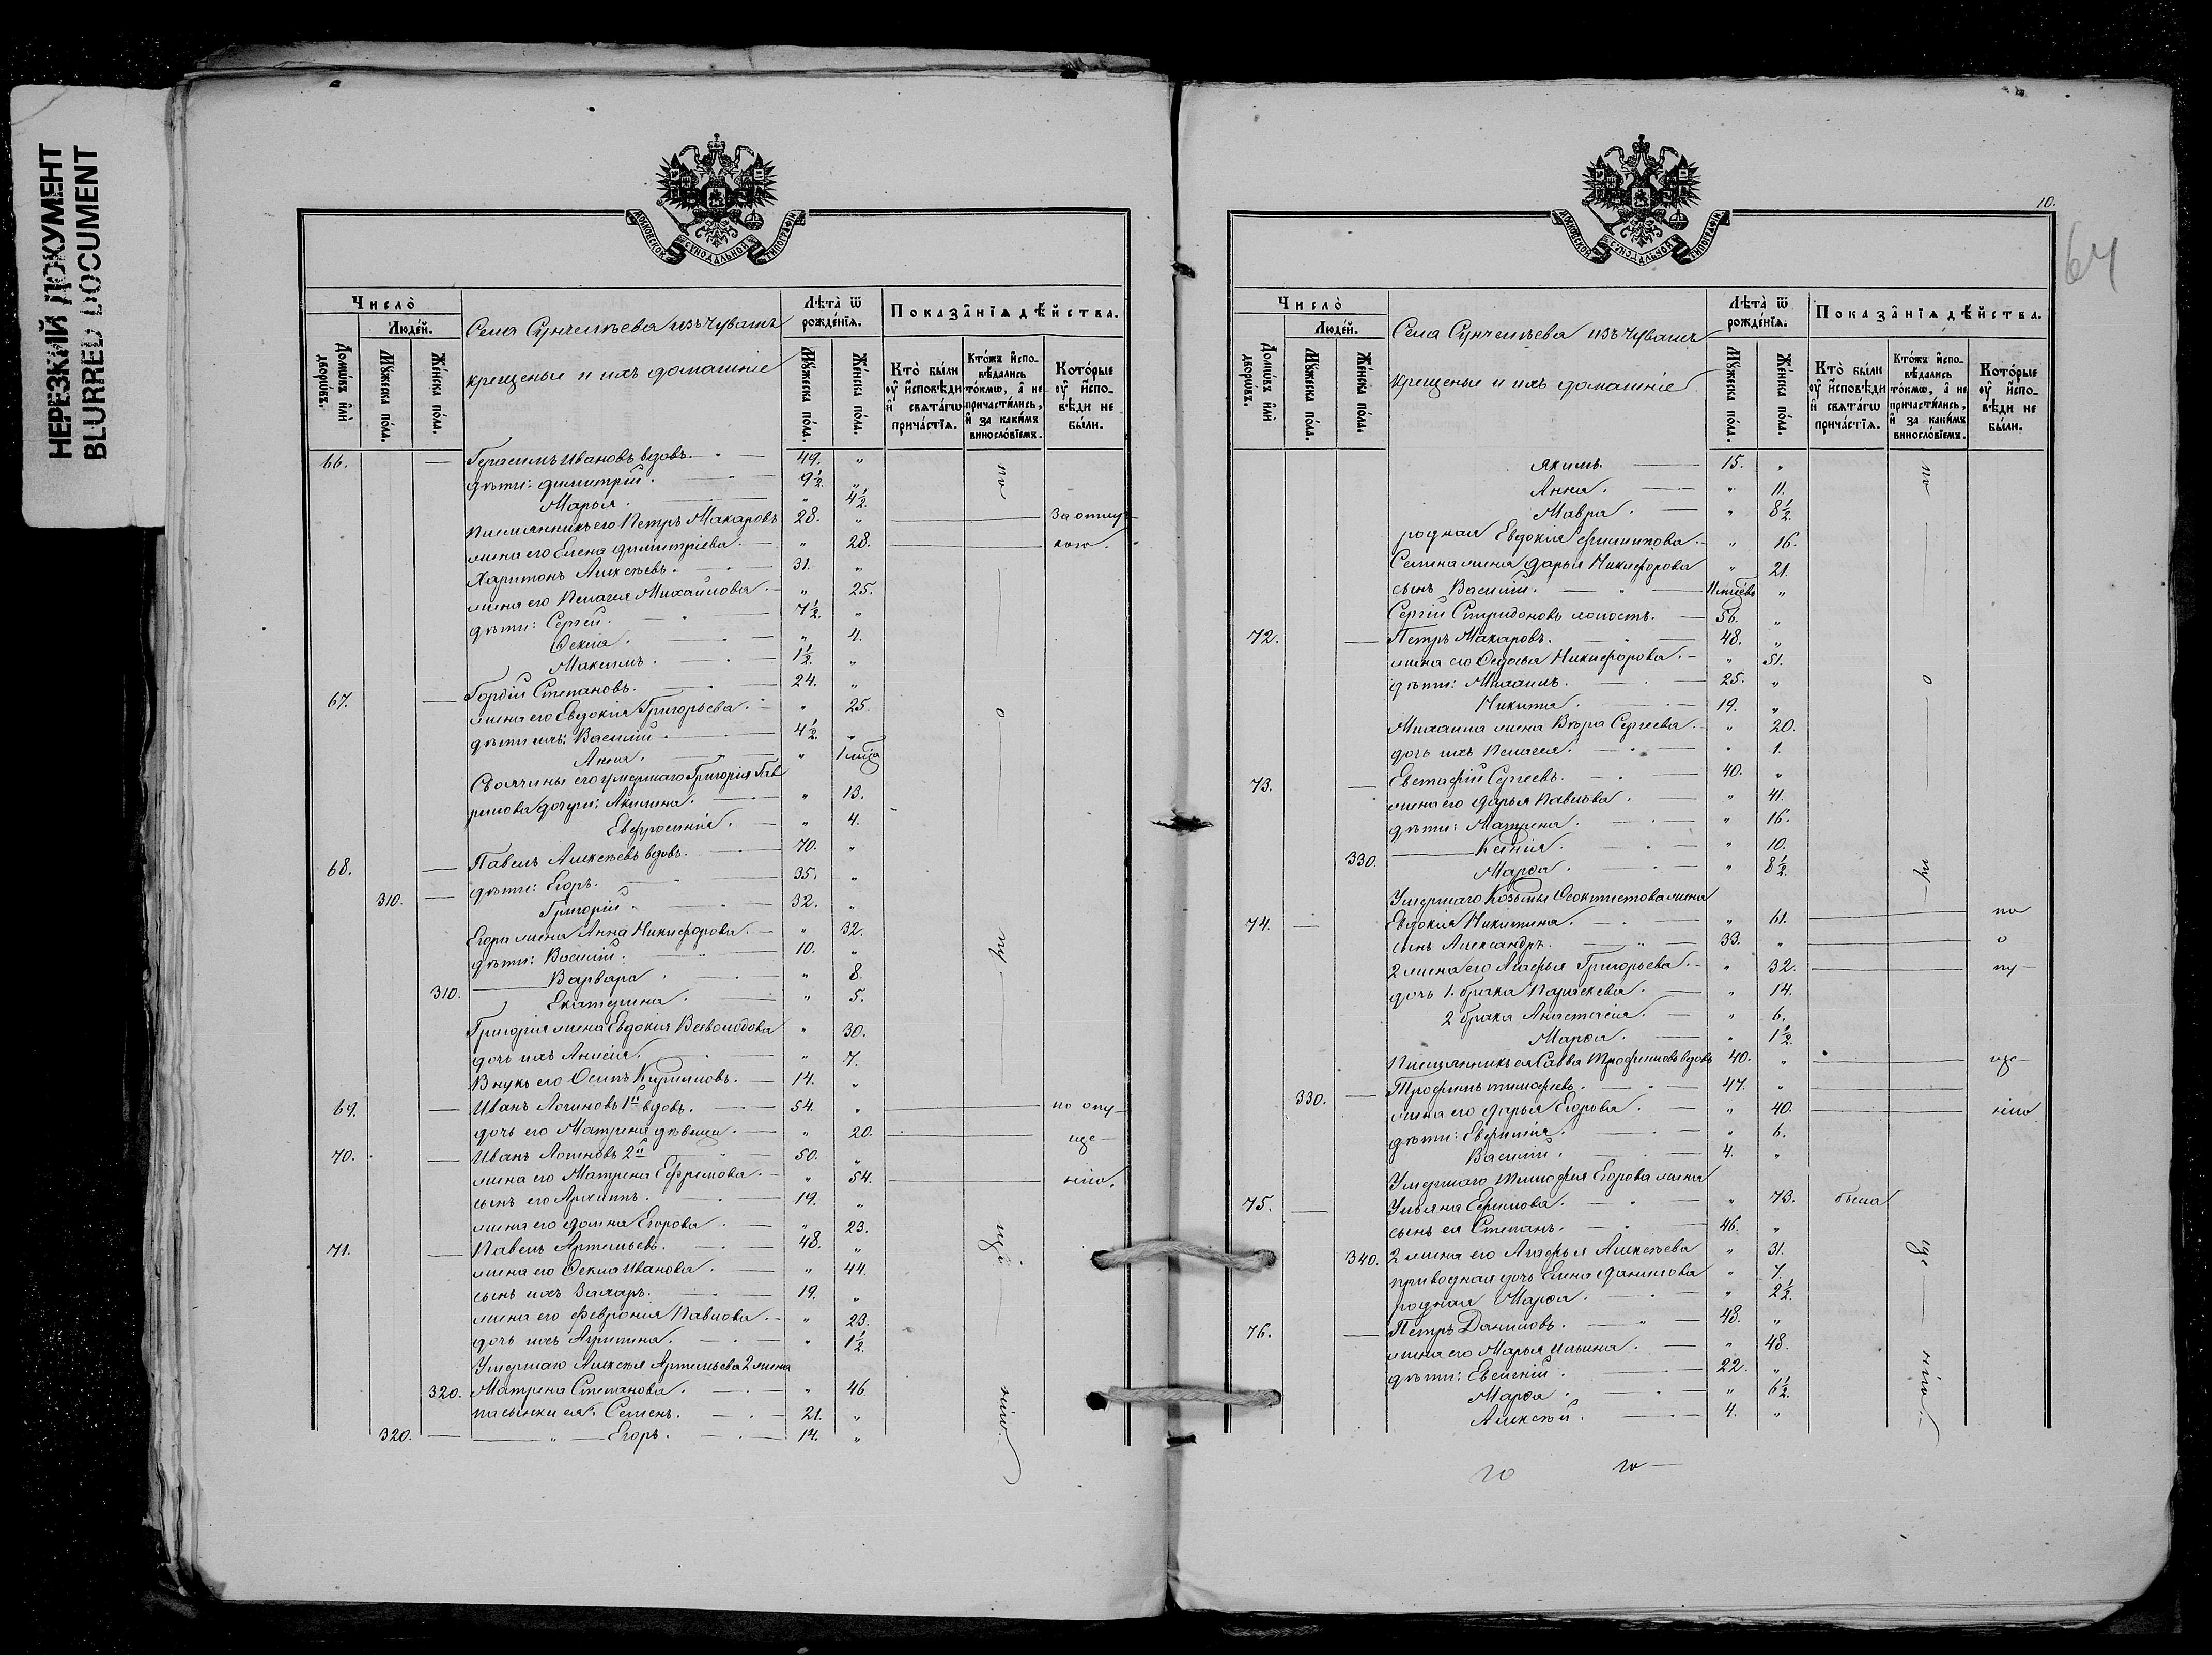 НЕРЕЗКИЙ ДОКУМЕНТ
BLURRED DOCUMENT
МОСКОВСКОЙ СѴНОДАЛЬНОЙ ТИПОГРАФІИ
Число̀
Люде́й.
Домѡ́въ и҆лѝ дворѡ́въ.
Мꙋ́жеска по́ла.
Же́нска по́ла.
Села Сунчелѣева изъ Чувашъ
крещеные и ихъ домашніе
Лѣта̀ ѿ рожде́нїѧ.
Мꙋ́жеска по́ла.
Же́нска по́ла.
Показа̂нїѧ дѣ́йства.
Кто̀ бы́ли оу҆ и҆́сповѣди и҆ свѧта́гѡ прича́стїѧ.
Кто́жъ и҆спо-вѣ́дались то́кмѡ, а҆ не причасти́лись, и҆ за каки́мъ виносло́вїемъ.
Кото́рые оу҆ и҆́спо-вѣди не бы́ли.
66. — Герасимъ Ивановъ вдовъ. — 49. „
дѣти: Димитрій. — 9½. „
Марья. — „ 4½.
племянникъ его Петръ Макаровъ 28. „ — За отлуч-
жена его Елена Димитріева. — „ 28. — кою.
Харитонъ Алексѣевъ. — 31. „
жена его Пелагея Михайлова. — „ 25.
дѣти: Сергѣй. — 7½. „
Ѳекла. — „ 4.
Максимъ. — 1½. „
67. — Гордій Степановъ. — 24. „
жена его Евдокія Григорьева. — „ 25.
дѣти ихъ: Василій. — 4½. „
Анна. — „ 1 мѣся
Свояч­ины его умершаго Григорія Гав
рилова дочери: Акилина. — „ 13.
Евфросинія. — „ 4.
68. — Павелъ Алексѣевъ вдовъ. — 70. „
дѣти: Егоръ. — 35. „
310. — Григорій. — 32. „
Егора жена Анна Никифорова. — „ 32.
дѣти: Василій. — 10. „
Варвара. — „ 8.
310. Екатерина. — „ 5.
Григорія жена Евдокія Всеволодова „ 30.
дочь ихъ Анисія. — „ 7.
Внукъ его Осипъ Кириловъ. — 14. „
69. — Иванъ Логиновъ 1й вдовъ. — 54. „ — по опу-
дочь его Матрена дѣвица. — „ 20. — ще-
70. — Иванъ Логиновъ 2й 50. „
жена его Матрена Ефремова. — „ 54. — нію.
сынъ его Архиппъ. — 19. „
жена его Домна Егорова. — „ 23.
71. — Павелъ Артемьевъ. — 48. „
жена его Ѳекла Иванова. — „ 44.
сынъ ихъ Захаръ. — 19. „
жена его Февронія Павлова. — „ 23.
дочь ихъ Агрипина. — „ 1½.
Умершаго Алексѣя Артемьева 2 жена
320. Матрена Степанова. — „ 46.
пасынки ея: Семенъ. — 21. „
320. — „ — Егоръ. — 14. „
по
о
пу
ще
нію.
10.
64
МОСКОВСКОЙ СѴНОДАЛЬНОЙ ТИПОГРАФІИ
Число̀
Люде́й.
Домѡ́въ и҆лѝ дворѡ́въ.
Мꙋ́жеска по́ла.
Же́нска по́ла.
Села Сунчелѣева изъ Чувашъ
крещеные и ихъ домашніе.
Лѣта̀ ѿ рожде́нїѧ.
Мꙋ́жеска по́ла.
Же́нска по́ла.
Показа̂нїѧ дѣ́йства.
Кто̀ бы́ли оу҆ и҆́сповѣди и҆ свѧта́гѡ прича́стїѧ.
Кто́жъ и҆спо-вѣ́дались то́кмѡ, а҆ не причасти́лись, и҆ за каки́мъ виносло́вїемъ.
Кото́рые оу҆ и҆́спо-вѣди не бы́ли.
Якимъ. — 15. „
Анна. — „ 11.
Мавра. — „ 8½.
родная Евдокія Филиппова. — „ 16.
Семена жена Дарья Никифорова „ 21.
сынъ Василій. — „
Сергій Спиридоновъ холостъ. — 56. „
72. — Петръ Макаровъ. — 48. „
жена его Ѳедосья Никифорова. — „ 51.
дѣти: Михаилъ. — 25. „
Никита. — 19. „
Михаила жена Вѣра Сергѣева. — „ 20.
дочь ихъ Пелагея. — „ 1.
73. — Евстафій Сергѣевъ. — 40. „
жена его Дарья Павлова. — „ 41.
дѣти: Матрена. — „ 16.
330. Ксенія. — „ 10.
Марѳа. — „ 8½.
Умершаго Козьмы Ѳеоктистова жена
74. — Евдокія Никитина. — „ 61. — по
сынъ Александръ. — 33. „ — о
2 жена его Агафья Григорьева. — „ 32. — пу-
дочь 1. брака Параскева. — „ 14.
2 брака Анастасія. — „ 6.
Марѳа. — „ 1½.
Племянникъ ея Савва Трофимовъ вдовъ 40. „ — ще-
330. — Трофимъ Тимофѣевъ. — 47. „
жена его Дарья Егорова. — „ 40. — нію
дѣти: Евфимія. — „ 6.
Василій. — 4. „
Умершаго Тимофея Егорова жена
75. — Ульяна Ефимова. — „ 73. была
сынъ ея Степанъ. — 46. „
340. 2 жена его Агафья Алексѣева „ 31.
приводная дочь Елена Данилова „ 7.
родная Марѳа. — „ 2½.
76. — Петръ Даниловъ. — 48. „
жена его Марья Ильина. — „ 48.
дѣти: Евсигній. — 22. „
Марѳа. — „ 6½.
Алексѣй. — 4. „
по
о
пу
ще
нію.
20 20 —